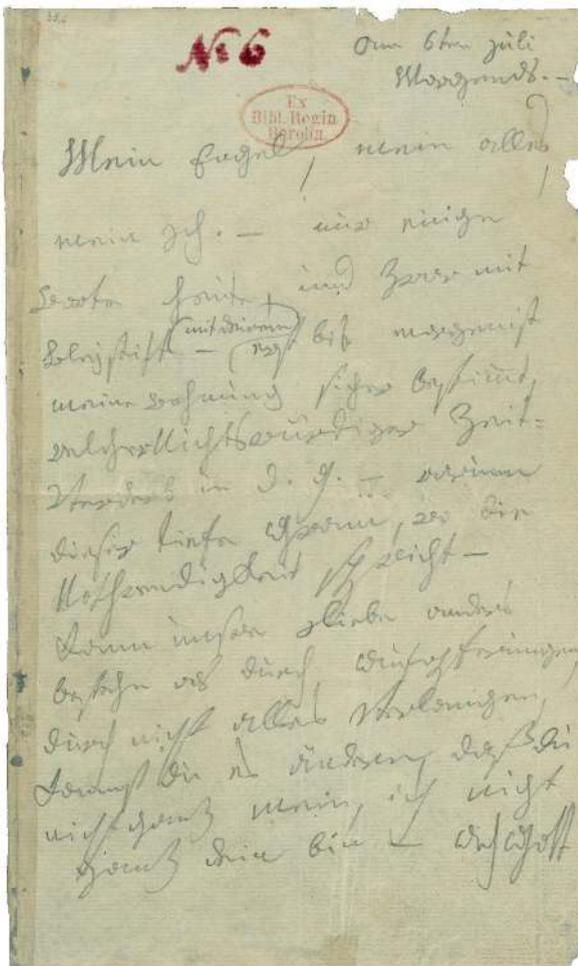 No 6
am 6ten juli
Morgends. –
Ex
Bibl. Regia
Berolin.
Mein Engel, mein alles,
mein Ich. – nur einige
Worte heute, und zwar mit
Bleystift – (mit deinem)
erst bis morgen ist
meine Wohnung sicher bestimmt,
welcher Nichtswürdiger Zeit-
Verderb in d. g. – warum
dieser tiefe Gram, wo die
Nothwendigkeit spricht –
Kann unsre Liebe anders
bestehn als durch Aufopferungen,
durch nicht alles verlangen,
kannst du es ändern, daß du
nicht ganz mein, ich nicht
ganz dein bin – Ach Gott